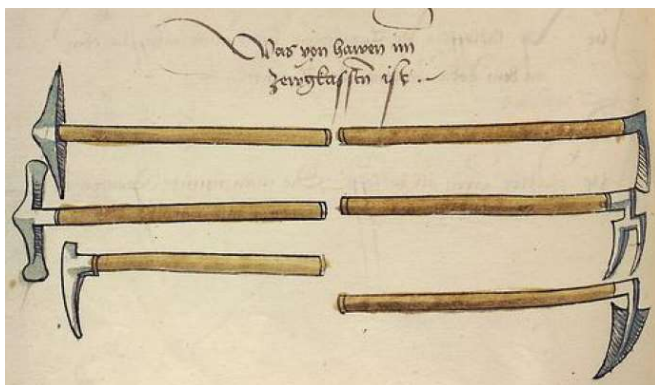 Was von hawen im
zewgkassten ist.